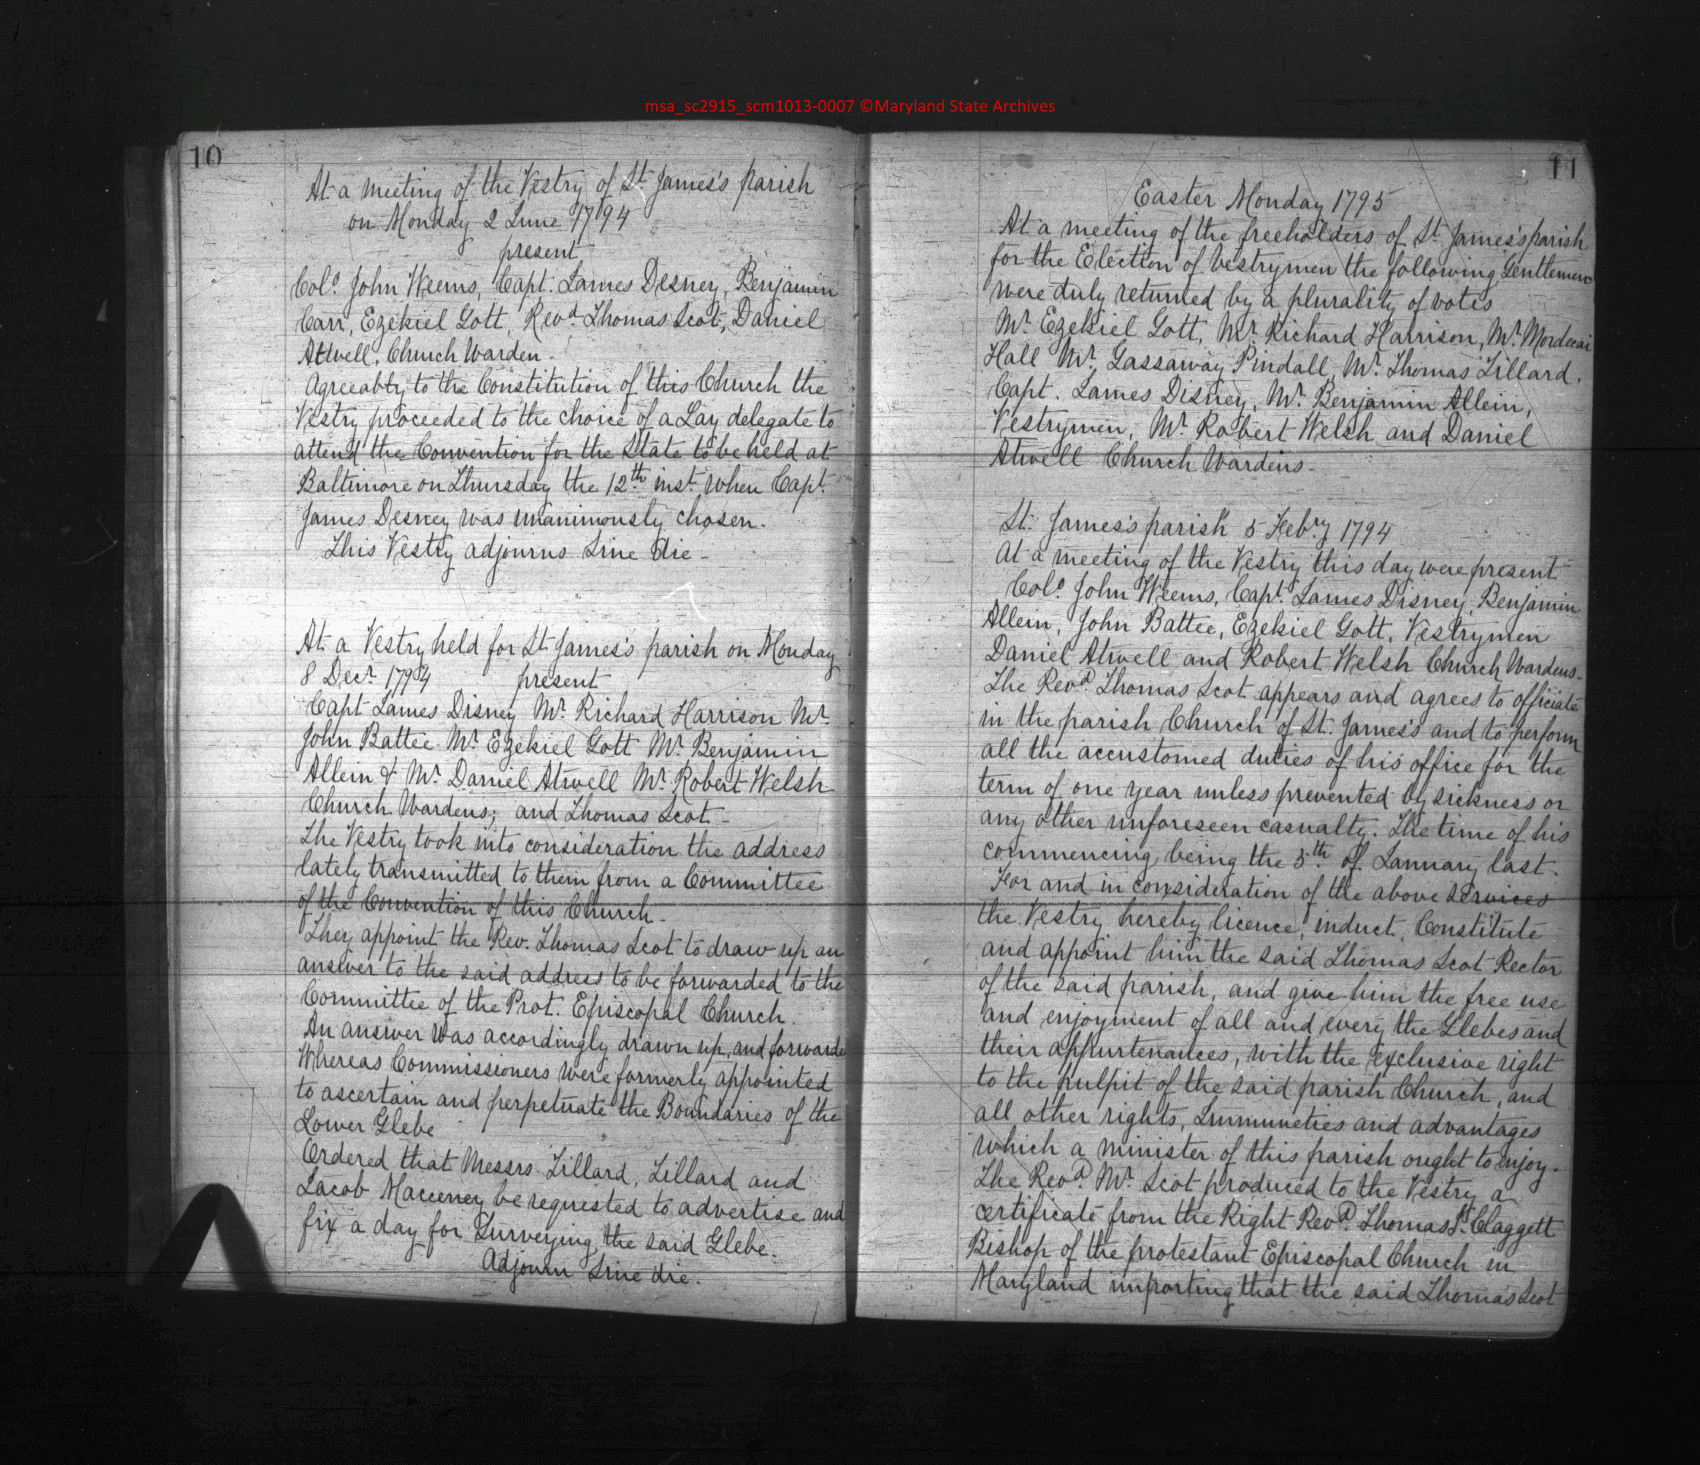 msa_sc2915_scm1013-0007 ©Maryland State Archives
10
At a meeting of the Vestry of St. James's parish
on Monday 2 June 1794
present
Colo. John Weems, Capt. James Disney, Benjamin
Carr, Ezekiel Gott, Revd. Thomas Scot, Daniel
Atwell, Church Warden -
Agreeably to the Constitution of this Church the
Vestry proceeded to the choice of a Lay delegate to
attend the Convention for the State to be held at
Baltimore on Thursday the 12th inst. when Capt.
James Disney was unanimously chosen.
This Vestry adjourns Sine die -
At a Vestry held for St. James's parish on Monday
8 Decr. 1794 present
Capt James Disney Mr. Richard Harrison Mr.
John Battee Mr. Ezekiel Gott Mr. Benjamin
Allein & Mr. Daniel Atwell Mr. Robert Welsh
Church Wardens; and Thomas Scot -
The Vestry took into consideration the address
lately transmitted to them from a Committee
of the Convention of this Church -
They appoint the Rev. Thomas Scot to draw up an
answer to the said address to be forwarded to the
Committee of the Prot. Episcopal Church.
An answer was accordingly drawn up, and forwarde
Whereas Commissioners were formerly appointed
to ascertain and perpetuate the Boundaries of the
Lower Glebe
Ordered that Messrs Tillard, Tillard and
Jacob Macceney be requested to advertise and
fix a day for Surveying the said Glebe.
Adjourn Sine die.
11
Easter Monday 1795
At a meeting of the freeholders of St. James's parish
for the Election of Vestrymen the following Gentlemen
were duly returned by a plurality of votes
Mr. Ezekiel Gott, Mr. Richard Harrison, Mr. Mordecai
Hall Mr. Gassaway Pindall, Mr. Thomas Tillard,
Capt. James Disney, Mr. Benjamin Allein,
Vestrymen, Mr. Robert Welsh and Daniel
Atwell Church Wardens -
St. James's parish 5 Febry 1794
At a meeting of the Vestry this day were present
Colo. John Weems, Capt. James Disney, Benjamin
Allein, John Battee, Ezekiel Gott, Vestrymen
Daniel Atwell and Robert Welsh Church Wardens -
The Revd. Thomas Scot appears and agrees to officiate
in the parish Church of St. James's and to perform
all the accustomed duties of his office for the
term of one year unless prevented by sickness or
any other unforeseen casualty. The time of his
commencing being the 5th of January last.
For and in consideration of the above services
the Vestry hereby licence, induct, Constitute
and appoint him the said Thomas Scot Rector
of the said parish, and give him the free use
and enjoyment of all and every the Glebes and
their appurtenances, with the exclusive right
to the pulpit of the said parish Church, and
all other rights, Immuneties and advantages
which a minister of this parish ought to enjoy.
The Revd. Mr. Scot produced to the Vestry a
certificate from the Right Revd. Thomas Jt. Claggett
Bishop of the protestant Episcopal Church in
Maryland importing that the said Thomas Scot